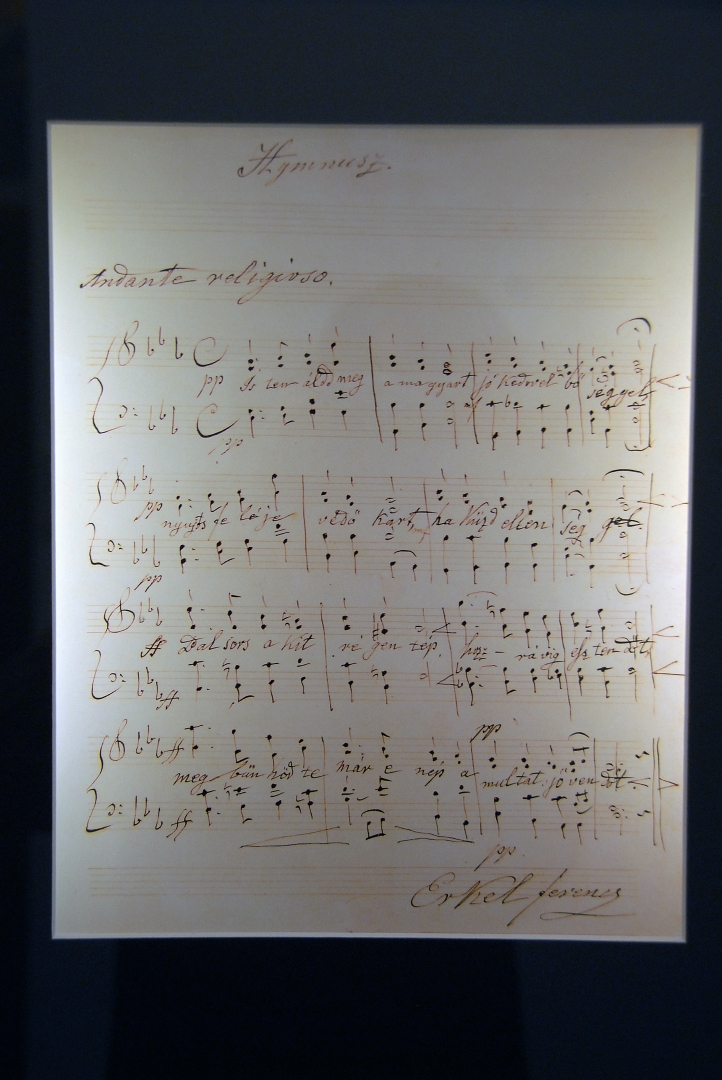 Hymnusz.
Andante religioso.
pp Is ten áldd meg a magyart jó kedvvel bő séggel
pp
pp nyujts fe léje védő kart, ha küzd ellen ség gel.
pp
ff Bal sors a kit ré gen tép, hoz - rá víg esz ten dőt,
ff
pp
ff meg bűn hőd te már e nép a multat jö ven dőt
ff
pp
Erkel ferencz